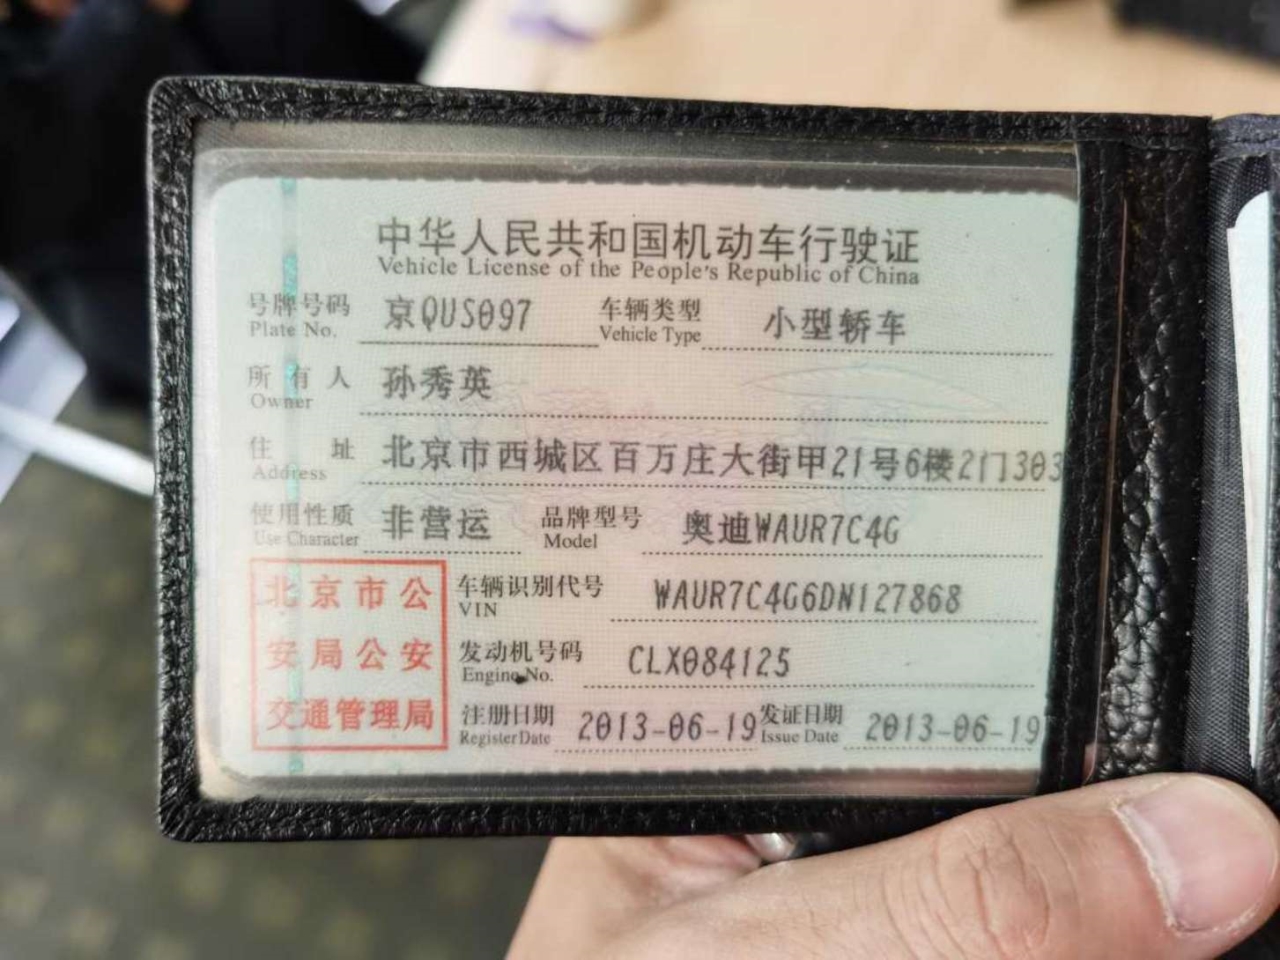 中华人民共和国机动车行驶证
Vehicle License of the People's Republic of China
号牌号码 京QUS097 车辆类型 小型轿车
Plate No. Vehicle Type
所有人 孙秀英
Owner
住址 北京市西城区百万庄大街甲21号6楼2门303
Address
使用性质 非营运 品牌型号 奥迪WAUR7C4G
Use Character Model
北京市公安局公安交通管理局
车辆识别代号 WAUR7C4G6DN127868
VIN
发动机号码 CLX084125
Engine No.
注册日期 2013-06-19 发证日期 2013-06-19
Register Date Issue Date